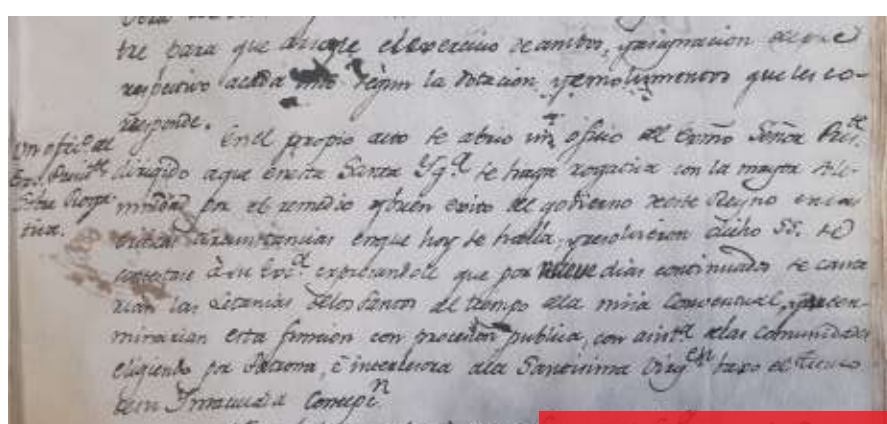 tre para que abone el exercicio de ambos, y asignacion de pie
respectivo a cada uno segun la dotacion, y emolumentos que les co-
rresponde.
Un ofic.o del
Ex. Presid.te
sobre Roga-
tiva.
En el propio acto se abrio un oficio del Exmo Señor Pres.te
dirigido a que en esta Santa Yg.a se haga rogativa con la mayor sole-
mnidad por el remedio y buen exito del govierno de este Reyno en las
criticas circunstancias en que hoy se halla, y resolvieron dicho SS. se
conteste à su Ex.a expresandole que por nueve dias continuados se canta
rian las Letanias de los Santos al tiempo de la misa Conventual, y que con-
minarian esta funcion con procesion publica, con asist.a de las Comunidades
eligiendo por Patrona, è intercesora a la Santisima Virg.en baxo el titulo
de su Inmaculada Concepi.n